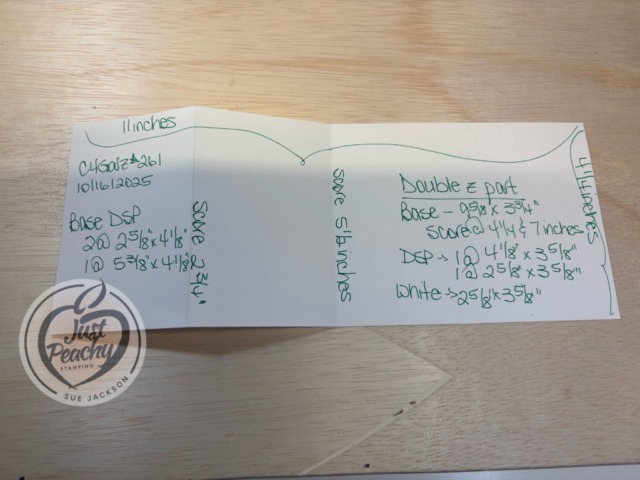 11 inches
C4Galz #261
10/16/2025
Base DSP
2@ 2 5/8" x 4 1/8"
1@ 5 3/8" x 4 1/8"
Score 2 3/4"
Score 5 1/2 inches
4 1/4 inches
Double z part
Base - 9 5/8" x 3 3/4"
Score @ 4 1/4 & 7 inches
DSP → 1@ 4 1/8" x 3 5/8"
1@ 2 5/8" x 3 5/8"
White → 2 5/8" x 3 5/8"
Just
Peachy
STAMPING
SUE JACKSON